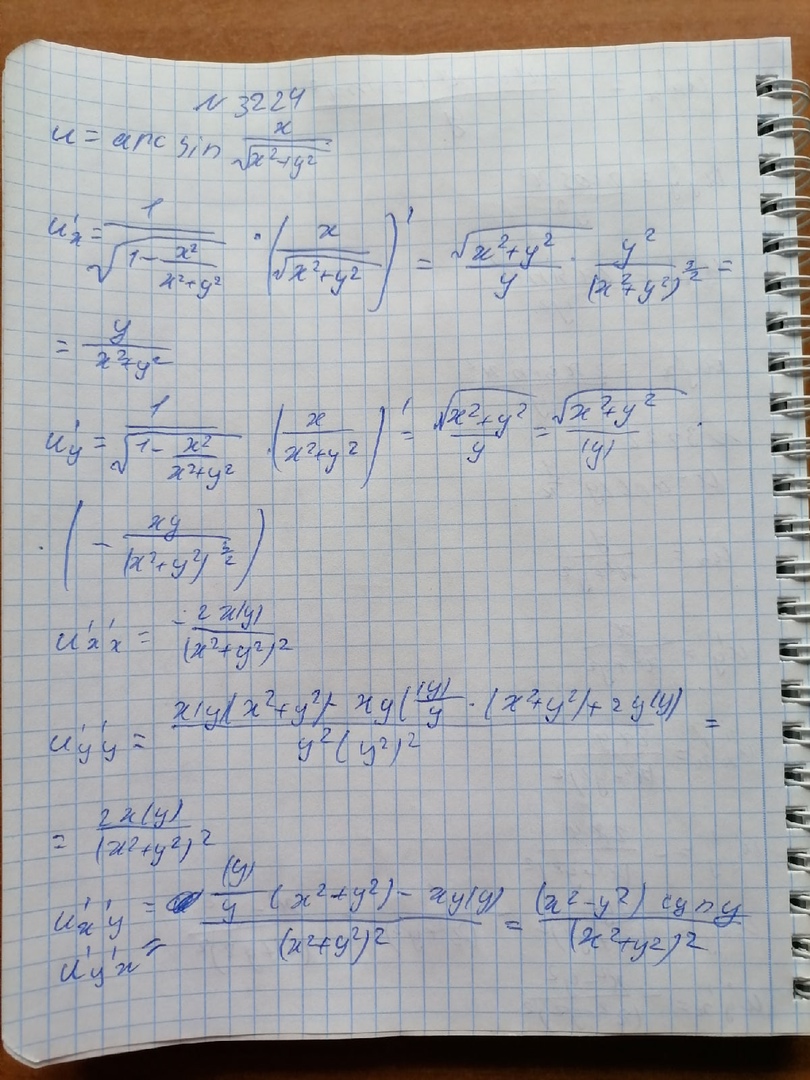 N 3224
u = arc sin x/√(x²+y²)
u'x = 1/√(1 - x²/(x²+y²)) · (x/√(x²+y²))' = √(x²+y²)/y · y²/(x²+y²)^(3/2) =
= y/(x²+y²)
u'y = 1/√(1 - x²/(x²+y²)) · (x/(x²+y²))' = √(x²+y²)/y = √(x²+y²)/|y| ·
· (- xy/(x²+y²)^(3/2))
u'x'x = -2x|y|/(x²+y²)²
u'y'y = x|y|(x²+y²) - xy(|y|/y · (x²+y²) + 2y|y|)/y²(y²)² =
= 2x|y|/(x²+y²)²
u'x'y = |y|/y (x²+y²) - xy|y|/(x²+y²)² = (x²-y²) сцпу/(x²+y²)²
u'y'x =